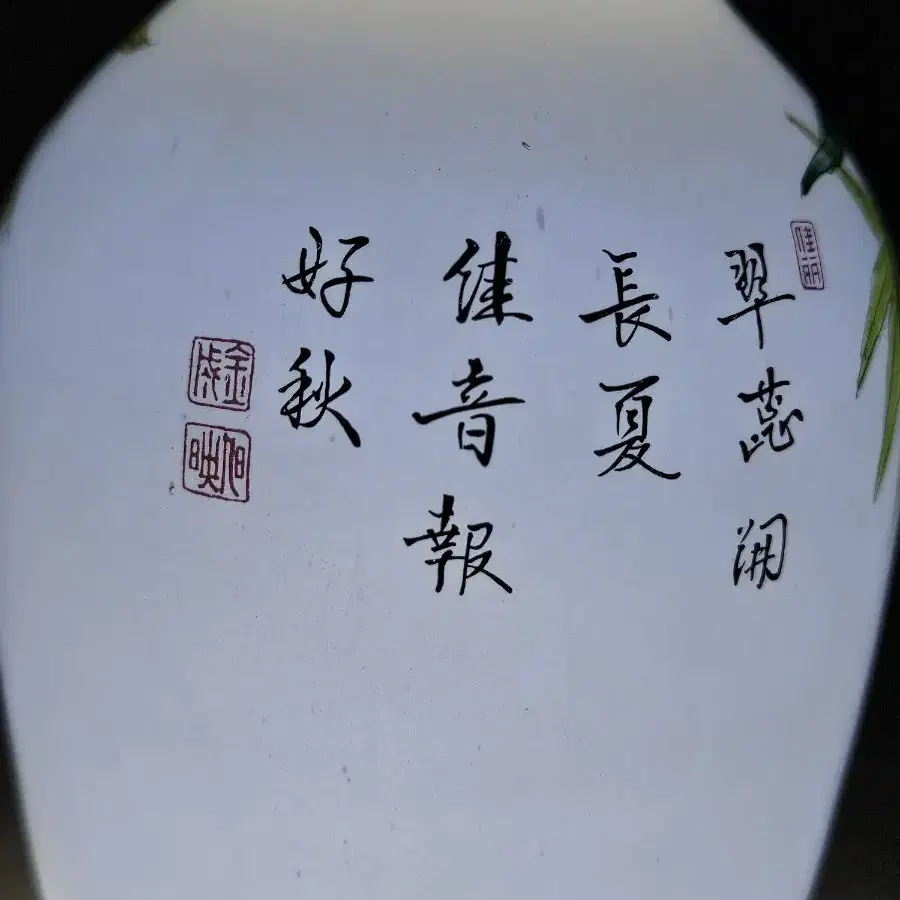 佳丽
翠蕊開
長夏
佳音報
好秋
金成
旭映